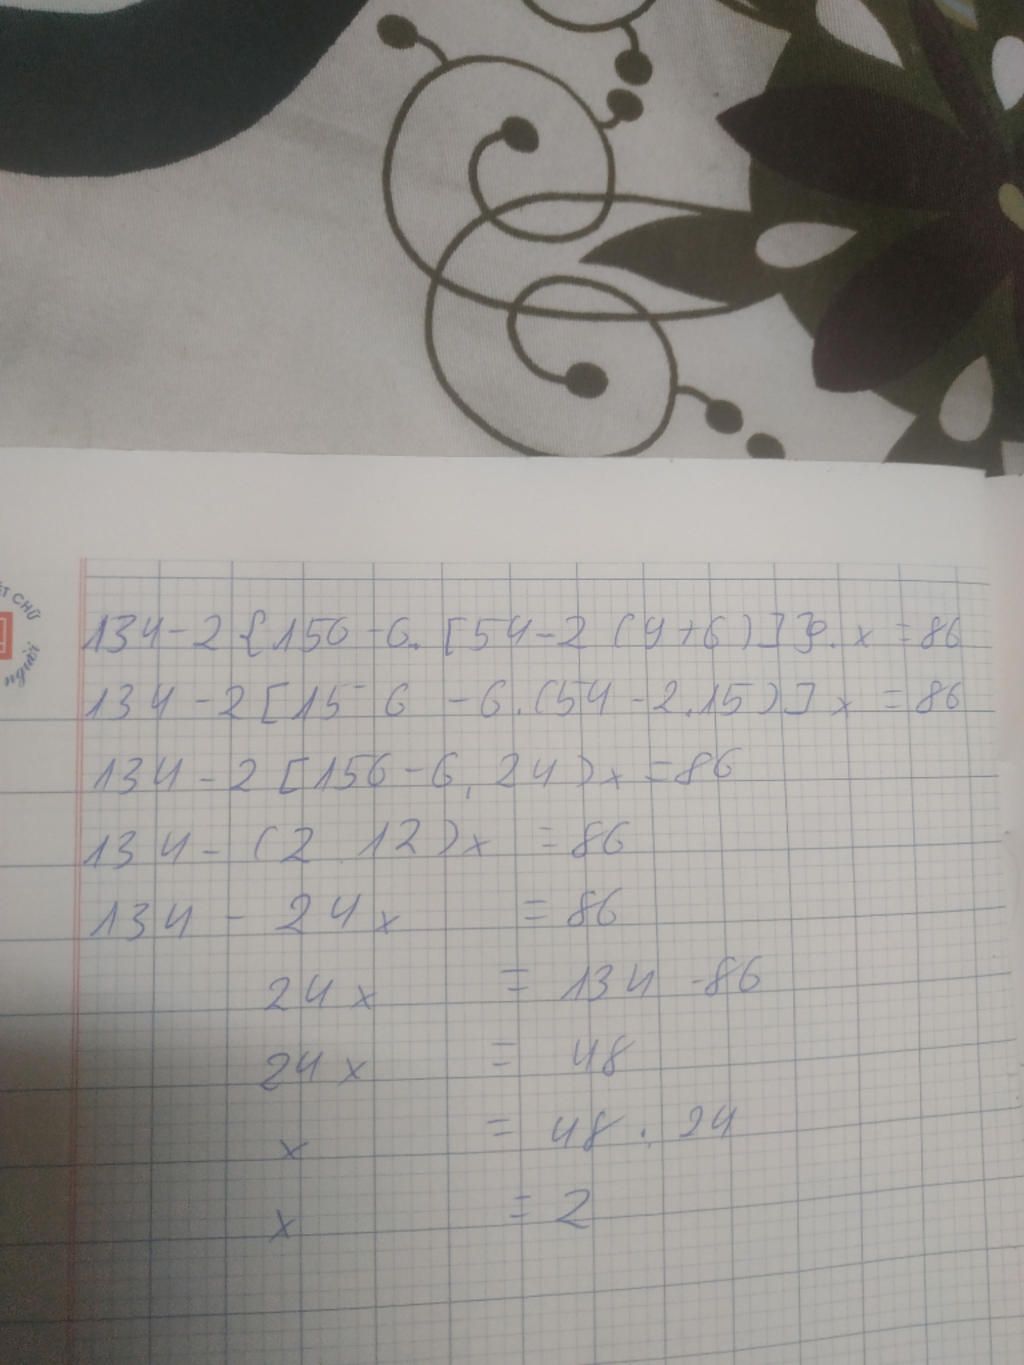 134 - 2 {156 - 6. [54 - 2 (9 + 6)]}. x = 86
134 - 2 [156 - 6. (54 - 2.15)] x = 86
134 - 2 [156 - 6. 24) x = 86
134 - (2 12) x = 86
134 - 24 x = 86
24 x = 134 - 86
24 x = 48
x = 48 : 24
x = 2
CHỮ
người